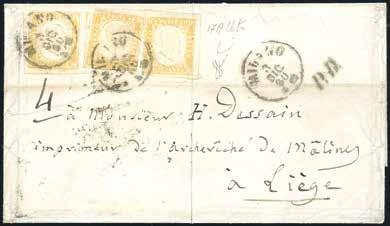 MILANO
MILANO
MILANO
P.D.
4
à Monsieur H. Dessain
imprimeur de l'Archevêché de Malines
à Liège